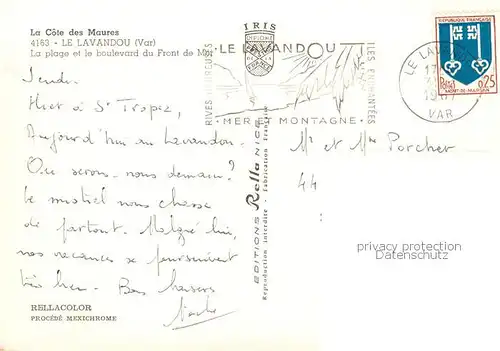 La Côte des Maures
4163 - LE LAVANDOU (Var)
La plage et le boulevard du Front de Mer
IRIS
LE LAVANDOU
RIVES HEUREUSES
ILES ENCHANTÉES
MER ET MONTAGNE
REPUBLIQUE FRANÇAISE
Postes 0,25
MONT-DE-MARSAN
LE LAVANDOU
17
VAR
Hier à St Tropez,
Aujourd'hui au Lavandou.
Où serons-nous demain?
Le mistral nous chasse
de partout. Malgré lui,
nos vacances se poursuivent
très bien. Bons baisers
RELLACOLOR
PROCÉDÉ MEXICHROME
EDITIONS Rella NICE
Reproduction interdite - Fabrication Française
Mr et Mme Porcher
44
privacy protection